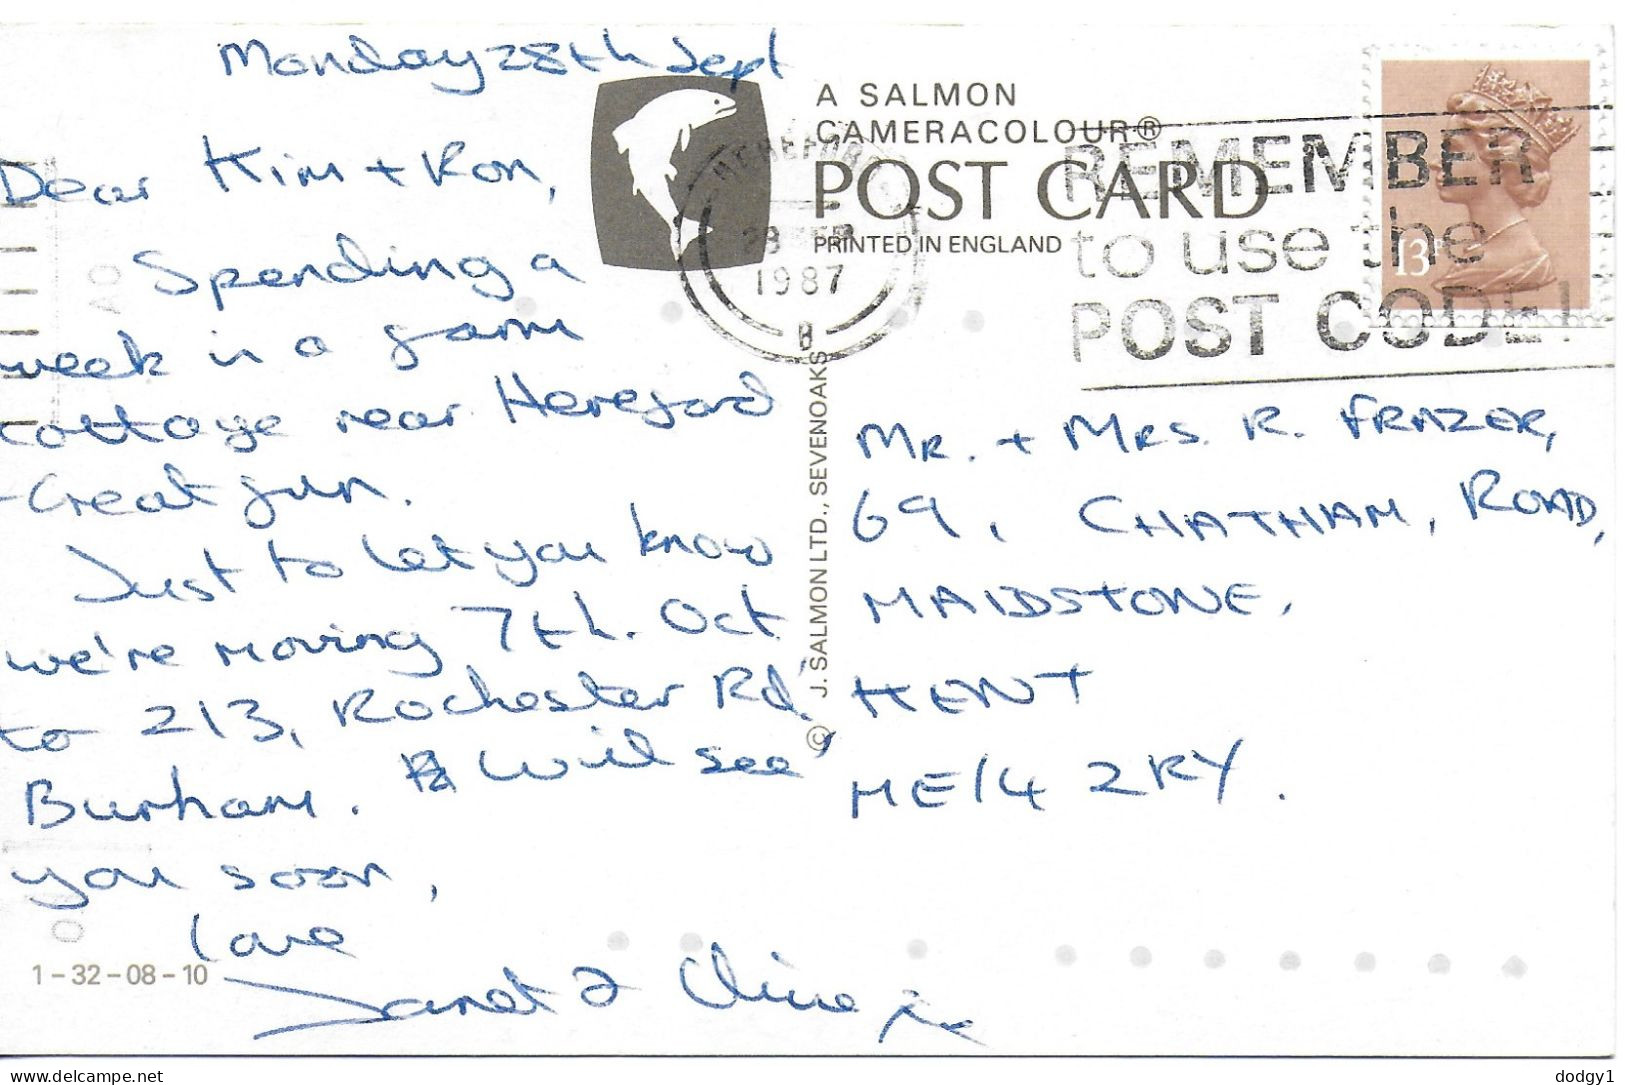 Monday 28th Sept
Dear Kim + Ron,
Spending a
week in a farm
cottage near Hereford
- Great fun.
Just to let you know
we're moving 7th. Oct
to 213, Rochester Rd,
Burham. Will see
you soon,
love
Janet & Clive xx
1-32-08-10
A SALMON
CAMERACOLOUR®
POST CARD
PRINTED IN ENGLAND
HEREFORD
28 SEP
1987
REMEMBER
to use the
POST CODE!
13P
© J. SALMON LTD., SEVENOAKS
MR. + MRS. R. FRAZER,
69, CHATHAM, ROAD,
MAIDSTONE,
KENT
ME14 2RY.
dodgy1